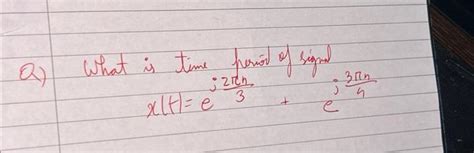 Q) What is time period of signal
x(t) = e^{j 2πn/3} + e^{j 3πn/4}